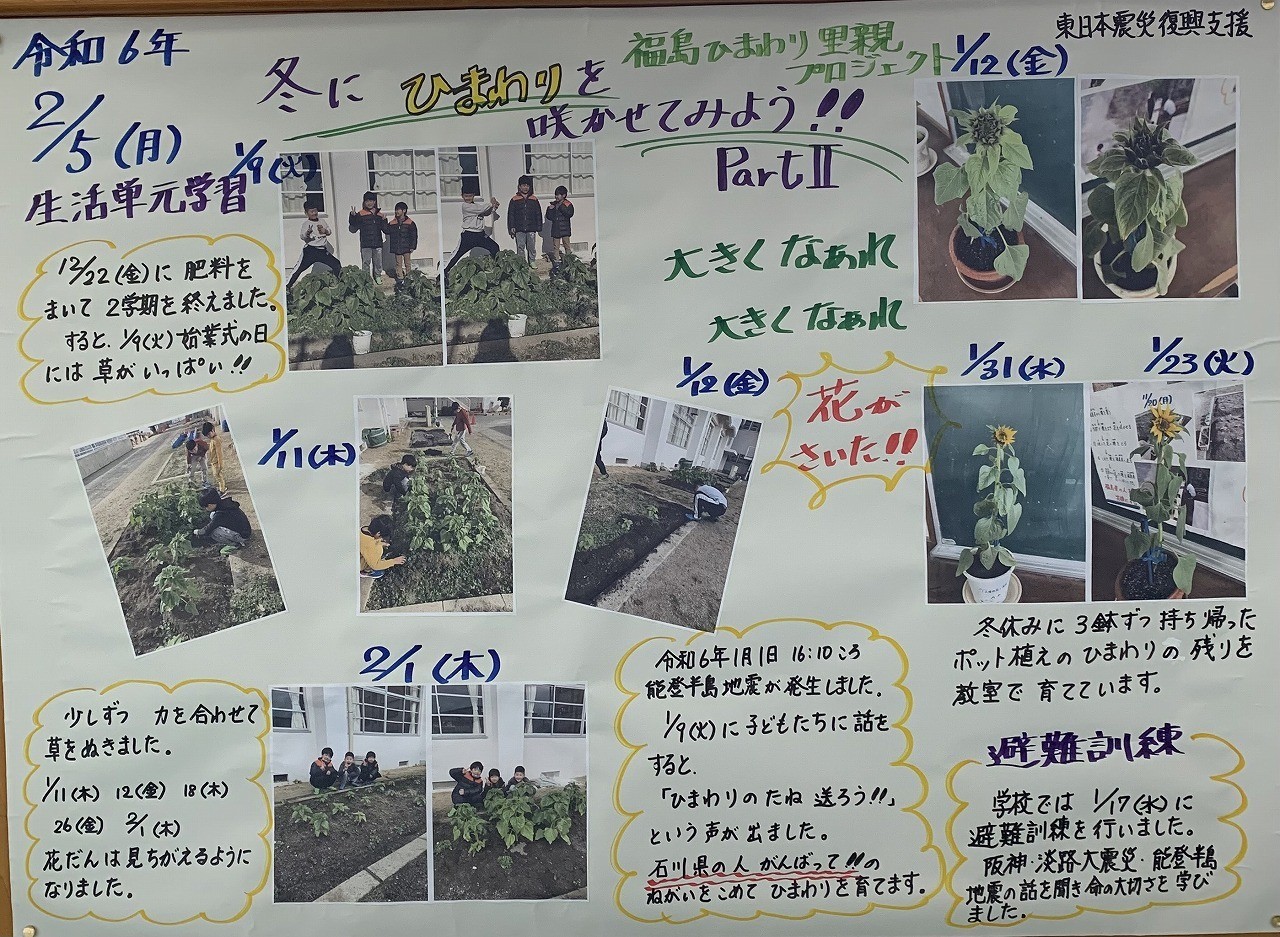 東日本震災復興支援
令和6年
2/5(月)
生活単元学習
福島ひまわり里親
プロジェクト
冬に ひまわりを
咲かせてみよう!!
Part Ⅱ
大きくなぁれ
大きくなぁれ
1/9(火)
12/22(金)に 肥料を
まいて 2学期を終えました。
すると、1/9(火)始業式の日
には 草がいっぱい!!
1/12(金)
1/11(木)
1/12(金)
花が
さいた!!
1/31(木)
1/23(火)
11/20(月)
冬休みに 3鉢ずつ持ち帰った
ポット植えの ひまわりの 残りを
教室で 育てています。
2/1(木)
少しずつ 力を合わせて
草をぬきました。
1/11(木) 12(金) 18(木)
26(金) 2/1(木)
花だんは見ちがえるように
なりました。
令和6年1月1日 16:10ころ
能登半島地震が発生しました。
1/9(火)に子どもたちに話を
すると、
「ひまわりのたね 送ろう!!」
という声が出ました。
石川県の人 がんばって!!の
ねがいをこめて ひまわりを育てます。
避難訓練
学校では 1/17(水)に
避難訓練を行いました。
阪神・淡路大震災・能登半島
地震の話を聞き命の大切さを学び
ました。